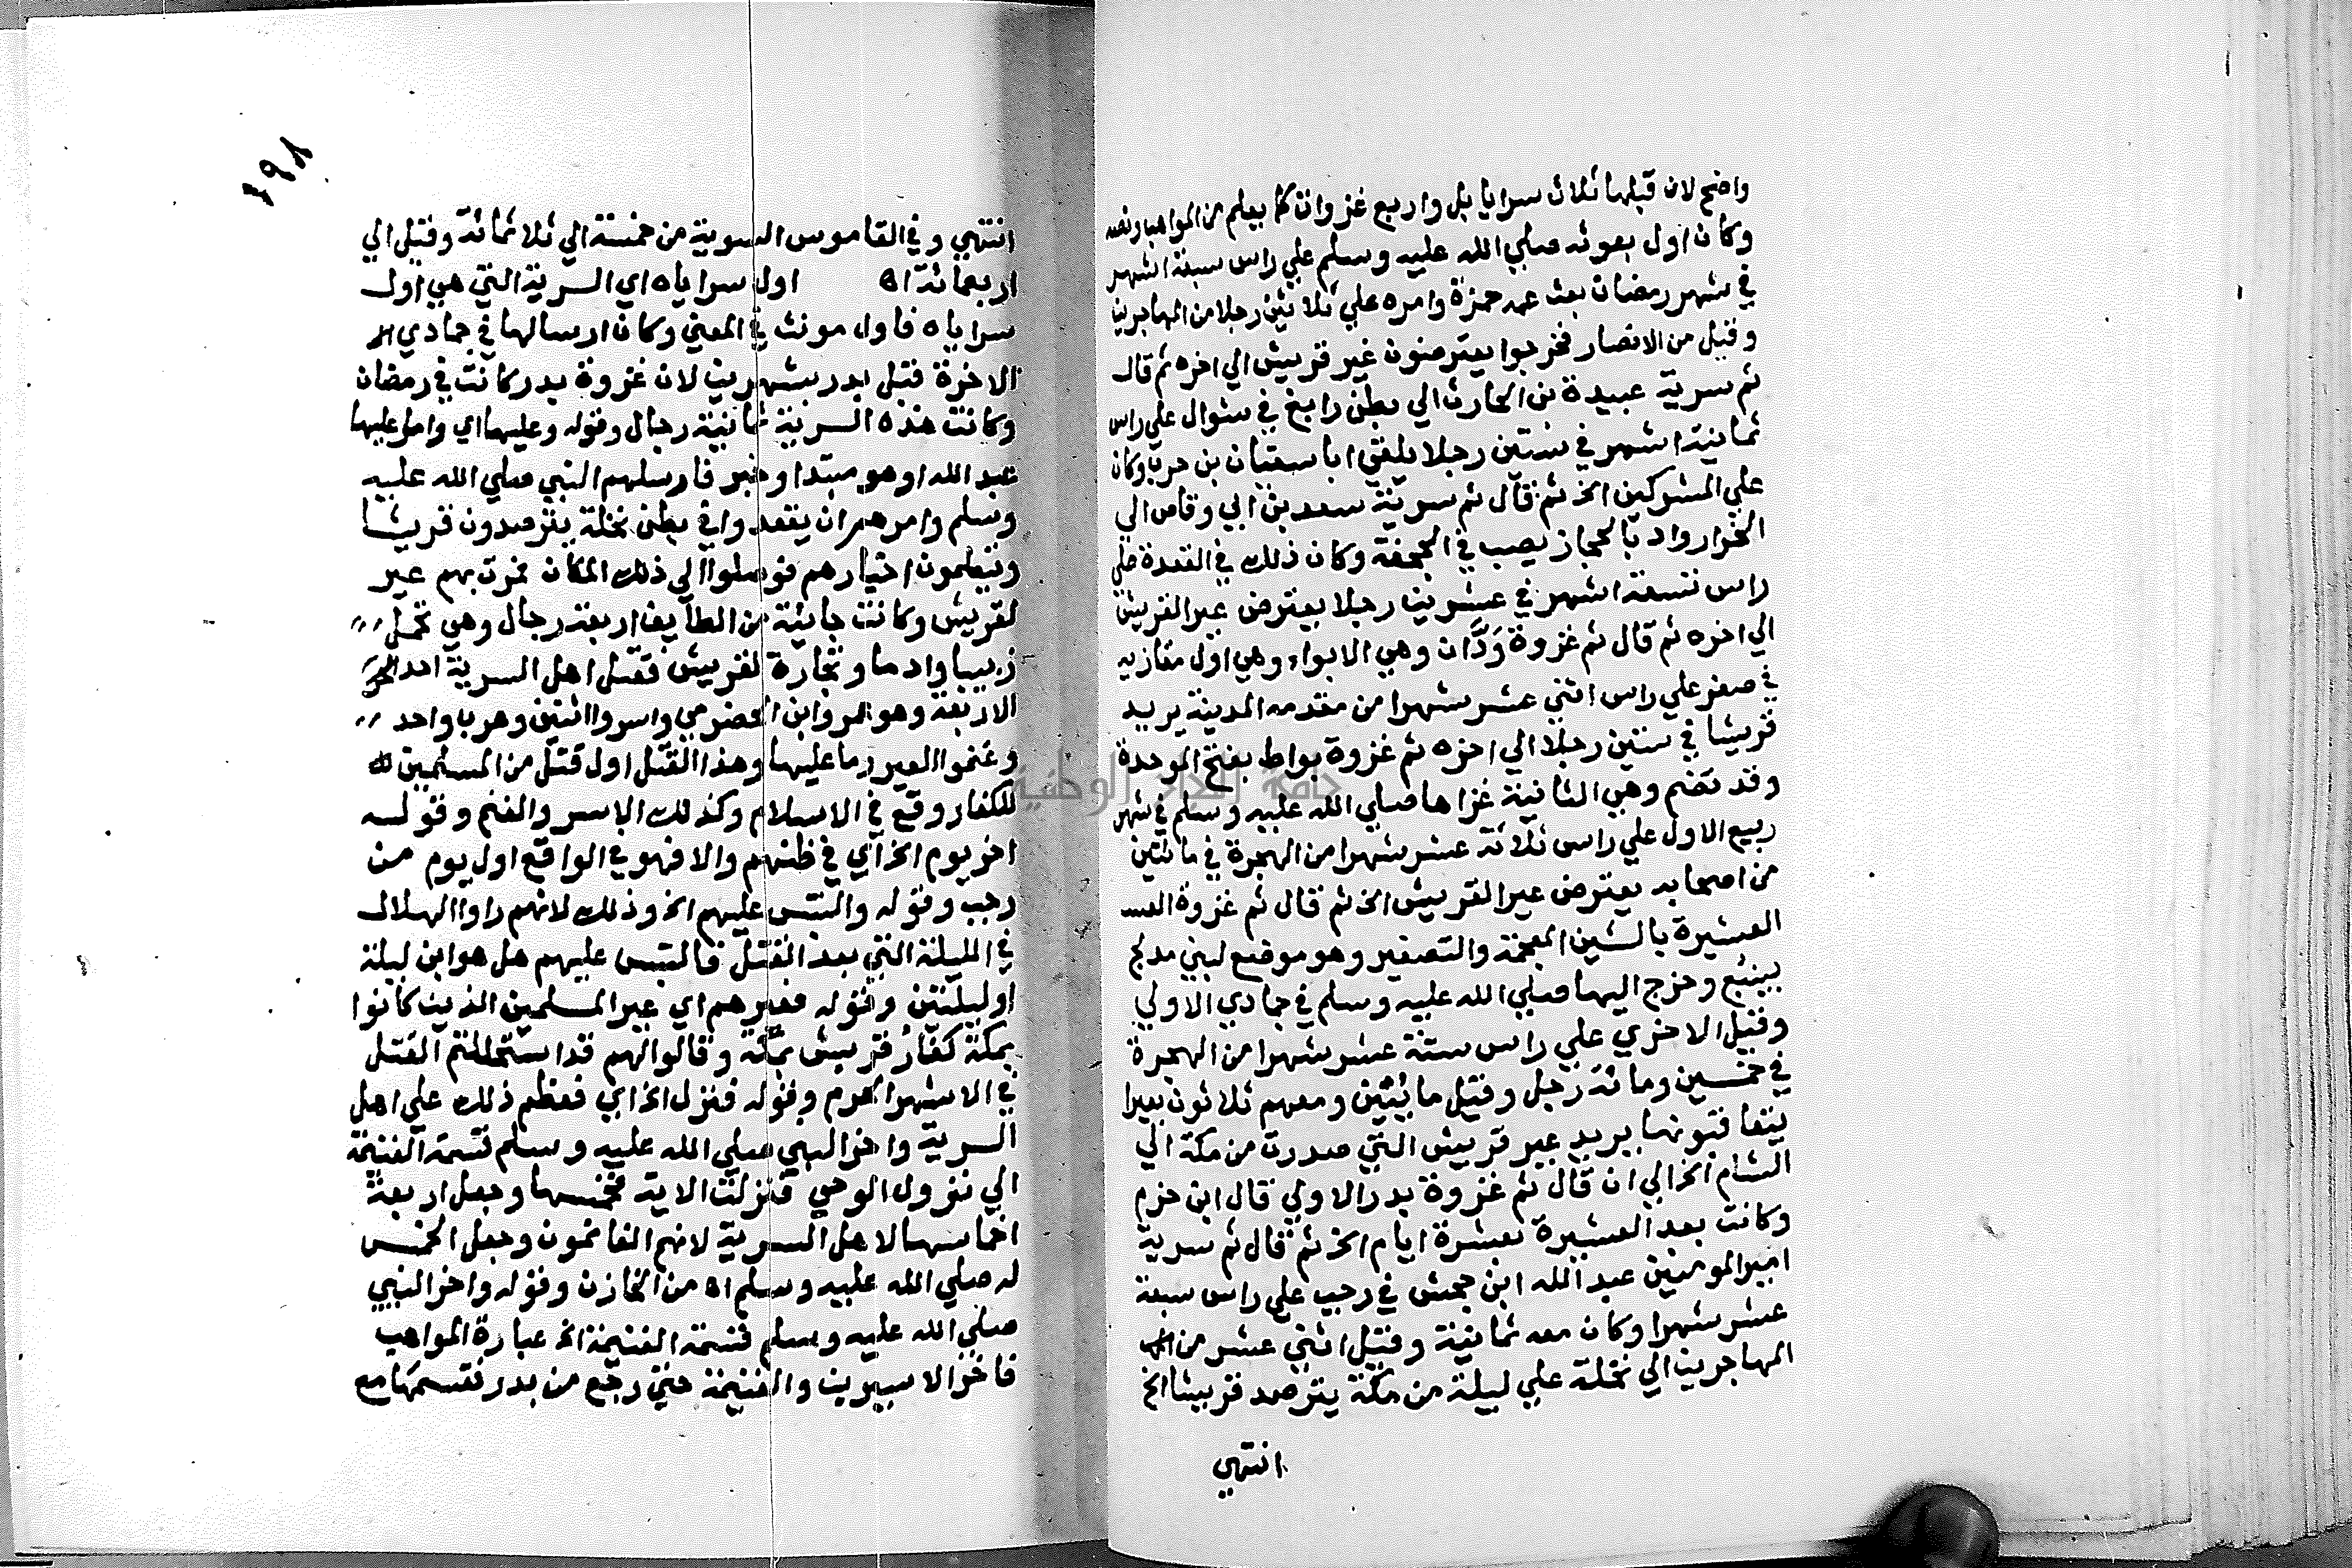 واضح لان قبلها ثلاث سرايا بل واربع غزوات كما يعلم من المواهب ونصه
وكان اول بعوثه صلي الله عليه وسلم علي راس سبعة اشهر
في شهر رمضان بعث عمه حمزة وامره علي ثلاثين رجلا من المهاجرين
وقيل من الانصار فخرجوا يعترضون عير قريش الي اخره ثم قال
ثم سرية عبيدة بن الحارث الي بطن رابغ في شوال علي راس
ثمانية اشهر في ستين رجلا يلقي ابا سفيان بن حرب وكان
علي المشركين الخ ثم قال ثم سرية سعد بن ابي وقاص الي
الخرار واد بالحجاز يصب في الجحفة وكان ذلك في القعدة علي
راس تسعة اشهر في عشرين رجلا يعترض عير القريش
الي اخره ثم قال ثم غزوة وَدَّان وهي الابواء وهي اول مغازيه
في صفر علي راس اثني عشر شهرا من مقدمه المدينة يريد
قريشا في ستين رجلا الي اخره ثم غزوة بواط بفتح الموحدة
وقد تضم وهي الثانية غزاها صلي الله عليه وسلم في شهر
ربيع الاول علي راس ثلاثة عشر شهرا من الهجرة في مائتين
من اصحابه يعترض عير القريش الخ ثم قال ثم غزوة العسـ
العشيرة بالشين المعجمة والتصغير وهو موقع لبني مدلج
بينبع وخرج اليها صلي الله عليه وسلم في جمادي الاولي
وقيل الاخري علي راس ستة عشر شهرا من الهجرة
في خمسين ومائة رجل وقيل مائتين ومعهم ثلاثون بعيرا
يتعاقبونها يريد عير قريش التي صدرت من مكة الي
الشام الخ الي ان قال ثم غزوة بدر الاولي قال ابن حزم
وكانت بعد العشيرة بعشرة ايام الخ ثم قال ثم سرية
امير المومنين عبد الله ابن جحش في رجب علي راس سبعة
عشر شهرا وكان معه ثمانية وقيل اثني عشر من المها
المهاجرين الي نخلة علي ليلة من مكة يترصد قريشا الخ
انتهي
١٩٨
انتهي وفي القاموس السرية من خمسة الي ثلاثمائة وقيل الي
اربعمائة اه اول سراياه اي السرية التي هي اول
سراياه فاول مونث في المعني وكان ارسالها في جمادي الا
الاخرة قبل بدر بشهرين لان غزوة بدر كانت في رمضان
وكانت هذه السرية ثمانية رجال وقوله وعليها اي وامر عليها
عبد الله او هو مبتدا وخبر فارسلهم النبي صلي الله عليه
وسلم وامرهم ان يقعدوا في بطن نخلة يترصدون قريشا
ويتعلمون اخبارهم فوصلوا الي ذلك المكان فمرت بهم عير
لقريش وكانت جائية من الطايف اربعة رجال وهي تحمل
زبيبا وادما وتجارة لقريش فقتل اهل السرية احد
الاربعة وهو عمرو ابن الحضرمي واسروا اثنين وهربا واحد
وغنموا العير وما عليها وهذا القتل اول قتل من المسلمين لله
للكفار وقع في الاسلام وكذلك الاسر والغنم وقوله
اخر يوم الخ اي في ظنهم والا فهو في الواقع اول يوم من
رجب وقوله والتبس عليهم الخ وذلك لانهم راوا الهلال
في الليلة التي بعد القتل فالتبس عليهم هل هو ابن ليلة
او ليلتين وقوله فعيرهم اي عير المسلمين الذين كانوا
بمكة كفار قريش بمكة وقالوا لهم قد استحللتم القتل
في الاشهر الحرم وقوله فنزل الخ اي فعظم ذلك علي اهل
السرية واخر النبي صلي الله عليه وسلم قسمة الغنيمة
الي نزول الوحي فنزلت الاية فخمسها وجعل اربعة
اخماسها لاهل السرية لانهم الغانمون وجعل الخمس
له صلي الله عليه وسلم اه من الخازن وقوله واخر النبي
صلي الله عليه وسلم قسمة الغنيمة الخ عبارة المواهب
فاخر الاسيرين والغنيمة حتي رجع من بدر فقسمها مع
جامعة النجاح الوطنية